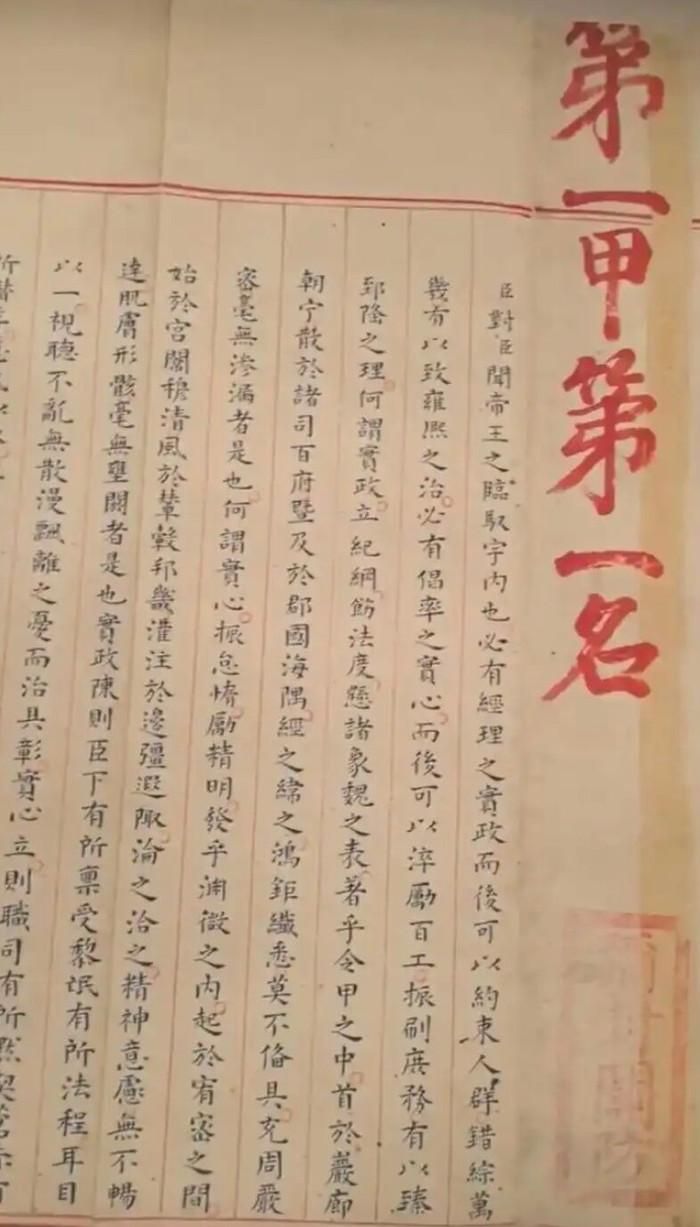 第一甲第一名
臣對臣聞帝王之臨馭宇內也必有經理之實政而後可以約束人群錯綜萬
幾有以致雍熙之治必有倡率之實心而後可以淬勵百工振刷庶務有以臻
郅隆之理何謂實政立紀綱飭法度懸諸象魏之表著乎令甲之中首於巖廊
朝宁散於諸司百府暨及於郡國海隅經之緯之鴻鉅纖悉莫不俻具充周嚴
密毫無滲漏者是也何謂實心振怠惰勵精明發乎淵微之內起於宥密之間
始於宮闈穆清風於輦轂邦畿灌注於邊疆遐陬淪之洽之精神意慮無不暢
達肌膚形骸毫無壅閼者是也實政陳則臣下有所禀受黎氓有所法程耳目
以一視聽不亂無散漫飄離之憂而治具彰實心立則職司有所